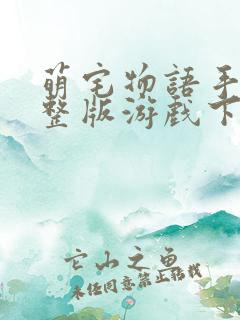 萌宅物語手
整版游戲下
它山之魚
未经同意禁止搭载